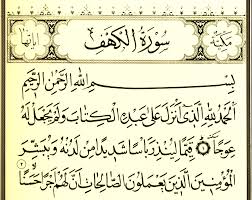 مكية سورة الكهف آياتها
بِسْمِ اللَّهِ الرَّحْمَٰنِ الرَّحِيمِ
الْحَمْدُ لِلَّهِ الَّذِي أَنْزَلَ عَلَىٰ عَبْدِهِ الْكِتَابَ وَلَمْ يَجْعَلْ لَهُ
عِوَجًا ۝ قَيِّمًا لِيُنْذِرَ بَأْسًا شَدِيدًا مِنْ لَدُنْهُ وَيُبَشِّرَ
الْمُؤْمِنِينَ الَّذِينَ يَعْمَلُونَ الصَّالِحَاتِ أَنَّ لَهُمْ أَجْرًا حَسَنًا